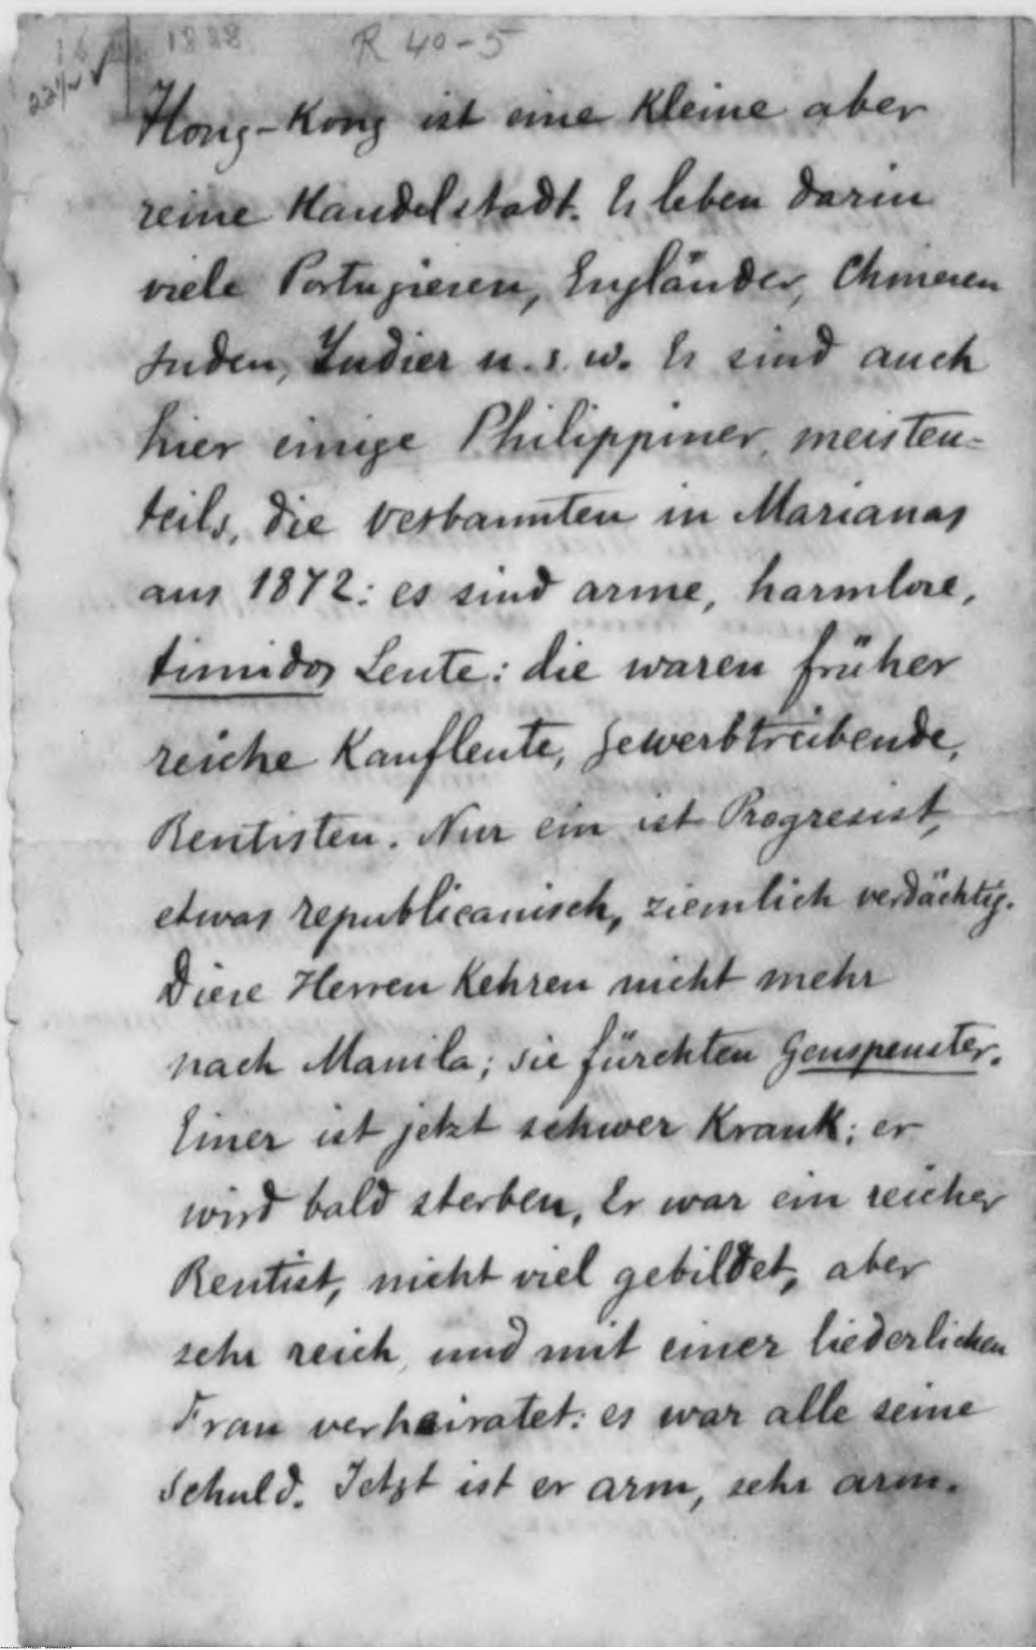 1888 R 40-5
Hong-Kong ist eine kleine aber
reine Handelstadt. Es leben darin
viele Portugiesen, Engländer, Chinesen
Juden, Indier u. s. w. Es sind auch
hier einige Philippiner, meisten-
teils, die Verbannten in Marianas
aus 1872: es sind arme, harmlose,
timidos Leute: die waren früher
reiche Kaufleute, Gewerbtreibende,
Rentisten. Nur ein ist Progresist,
etwas republicanisch, ziemlich verdächtig.
Diese Herren Kehren nicht mehr
nach Manila; sie fürchten Genspenster.
Einer ist jetzt schwer Krank; er
wird bald sterben, Er war ein reicher
Rentist, nicht viel gebildet, aber
sehr reich, und mit einer liederlichen
Frau verheiratet: es war alle seine
Schuld. Jetzt ist er arm, sehr arm.